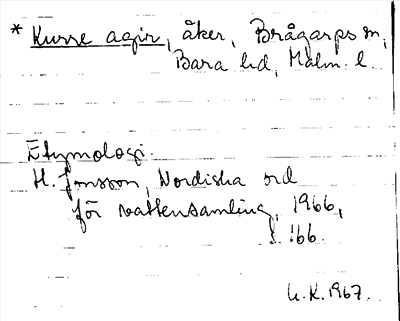 * Kurre agir, åker, Brågarps sn,
Bara hd, Malm. l.
Etymologi.
H. Jonsson, Nordiska ord
för vattensamling, 1966,
s. 166.
U.K. 1967.